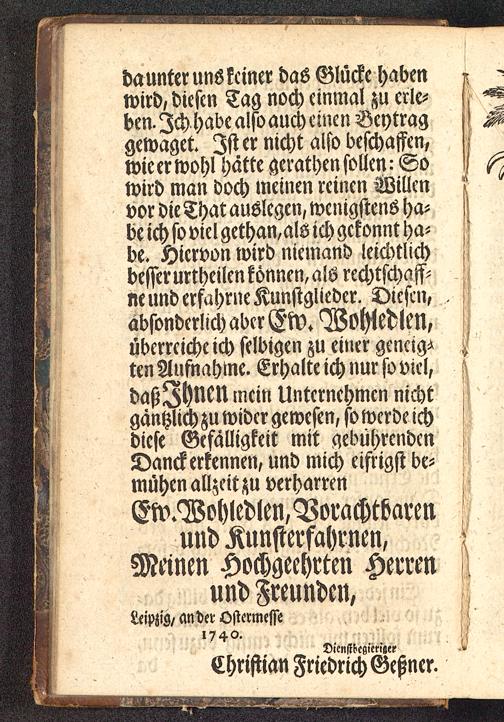 da unter uns keiner das Glücke haben
wird, diesen Tag noch einmal zu erle-
ben. Ich habe also auch einen Beytrag
gewaget. Ist er nicht also beschaffen,
wie er wohl hätte gerathen sollen: So
wird man doch meinen reinen Willen
vor die That auslegen, wenigstens ha-
be ich so viel gethan, als ich gekonnt ha-
be. Hiervon wird niemand leichtlich
besser urtheilen können, als rechtschaff-
ne und erfahrne Kunstglieder. Diesen,
absonderlich aber Ew. Wohledlen,
überreiche ich selbigen zu einer geneig-
ten Aufnahme. Erhalte ich nur so viel,
daß Ihnen mein Unternehmen nicht
gäntzlich zu wider gewesen, so werde ich
diese Gefälligkeit mit gebührenden
Danck erkennen, und mich eifrigst be-
mühen allzeit zu verharren
Ew. Wohledlen, Vorachtbaren
und Kunsterfahrnen,
Meinen Hochgeehrten Herren
und Freunden,
Leipzig, an der Ostermesse
1740.
Dienstbegieriger
Christian Friedrich Geßner.